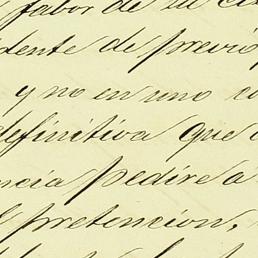 favor de su
dente de previo
y no en uno
definitiva que
ncia pedire a
pretencion,